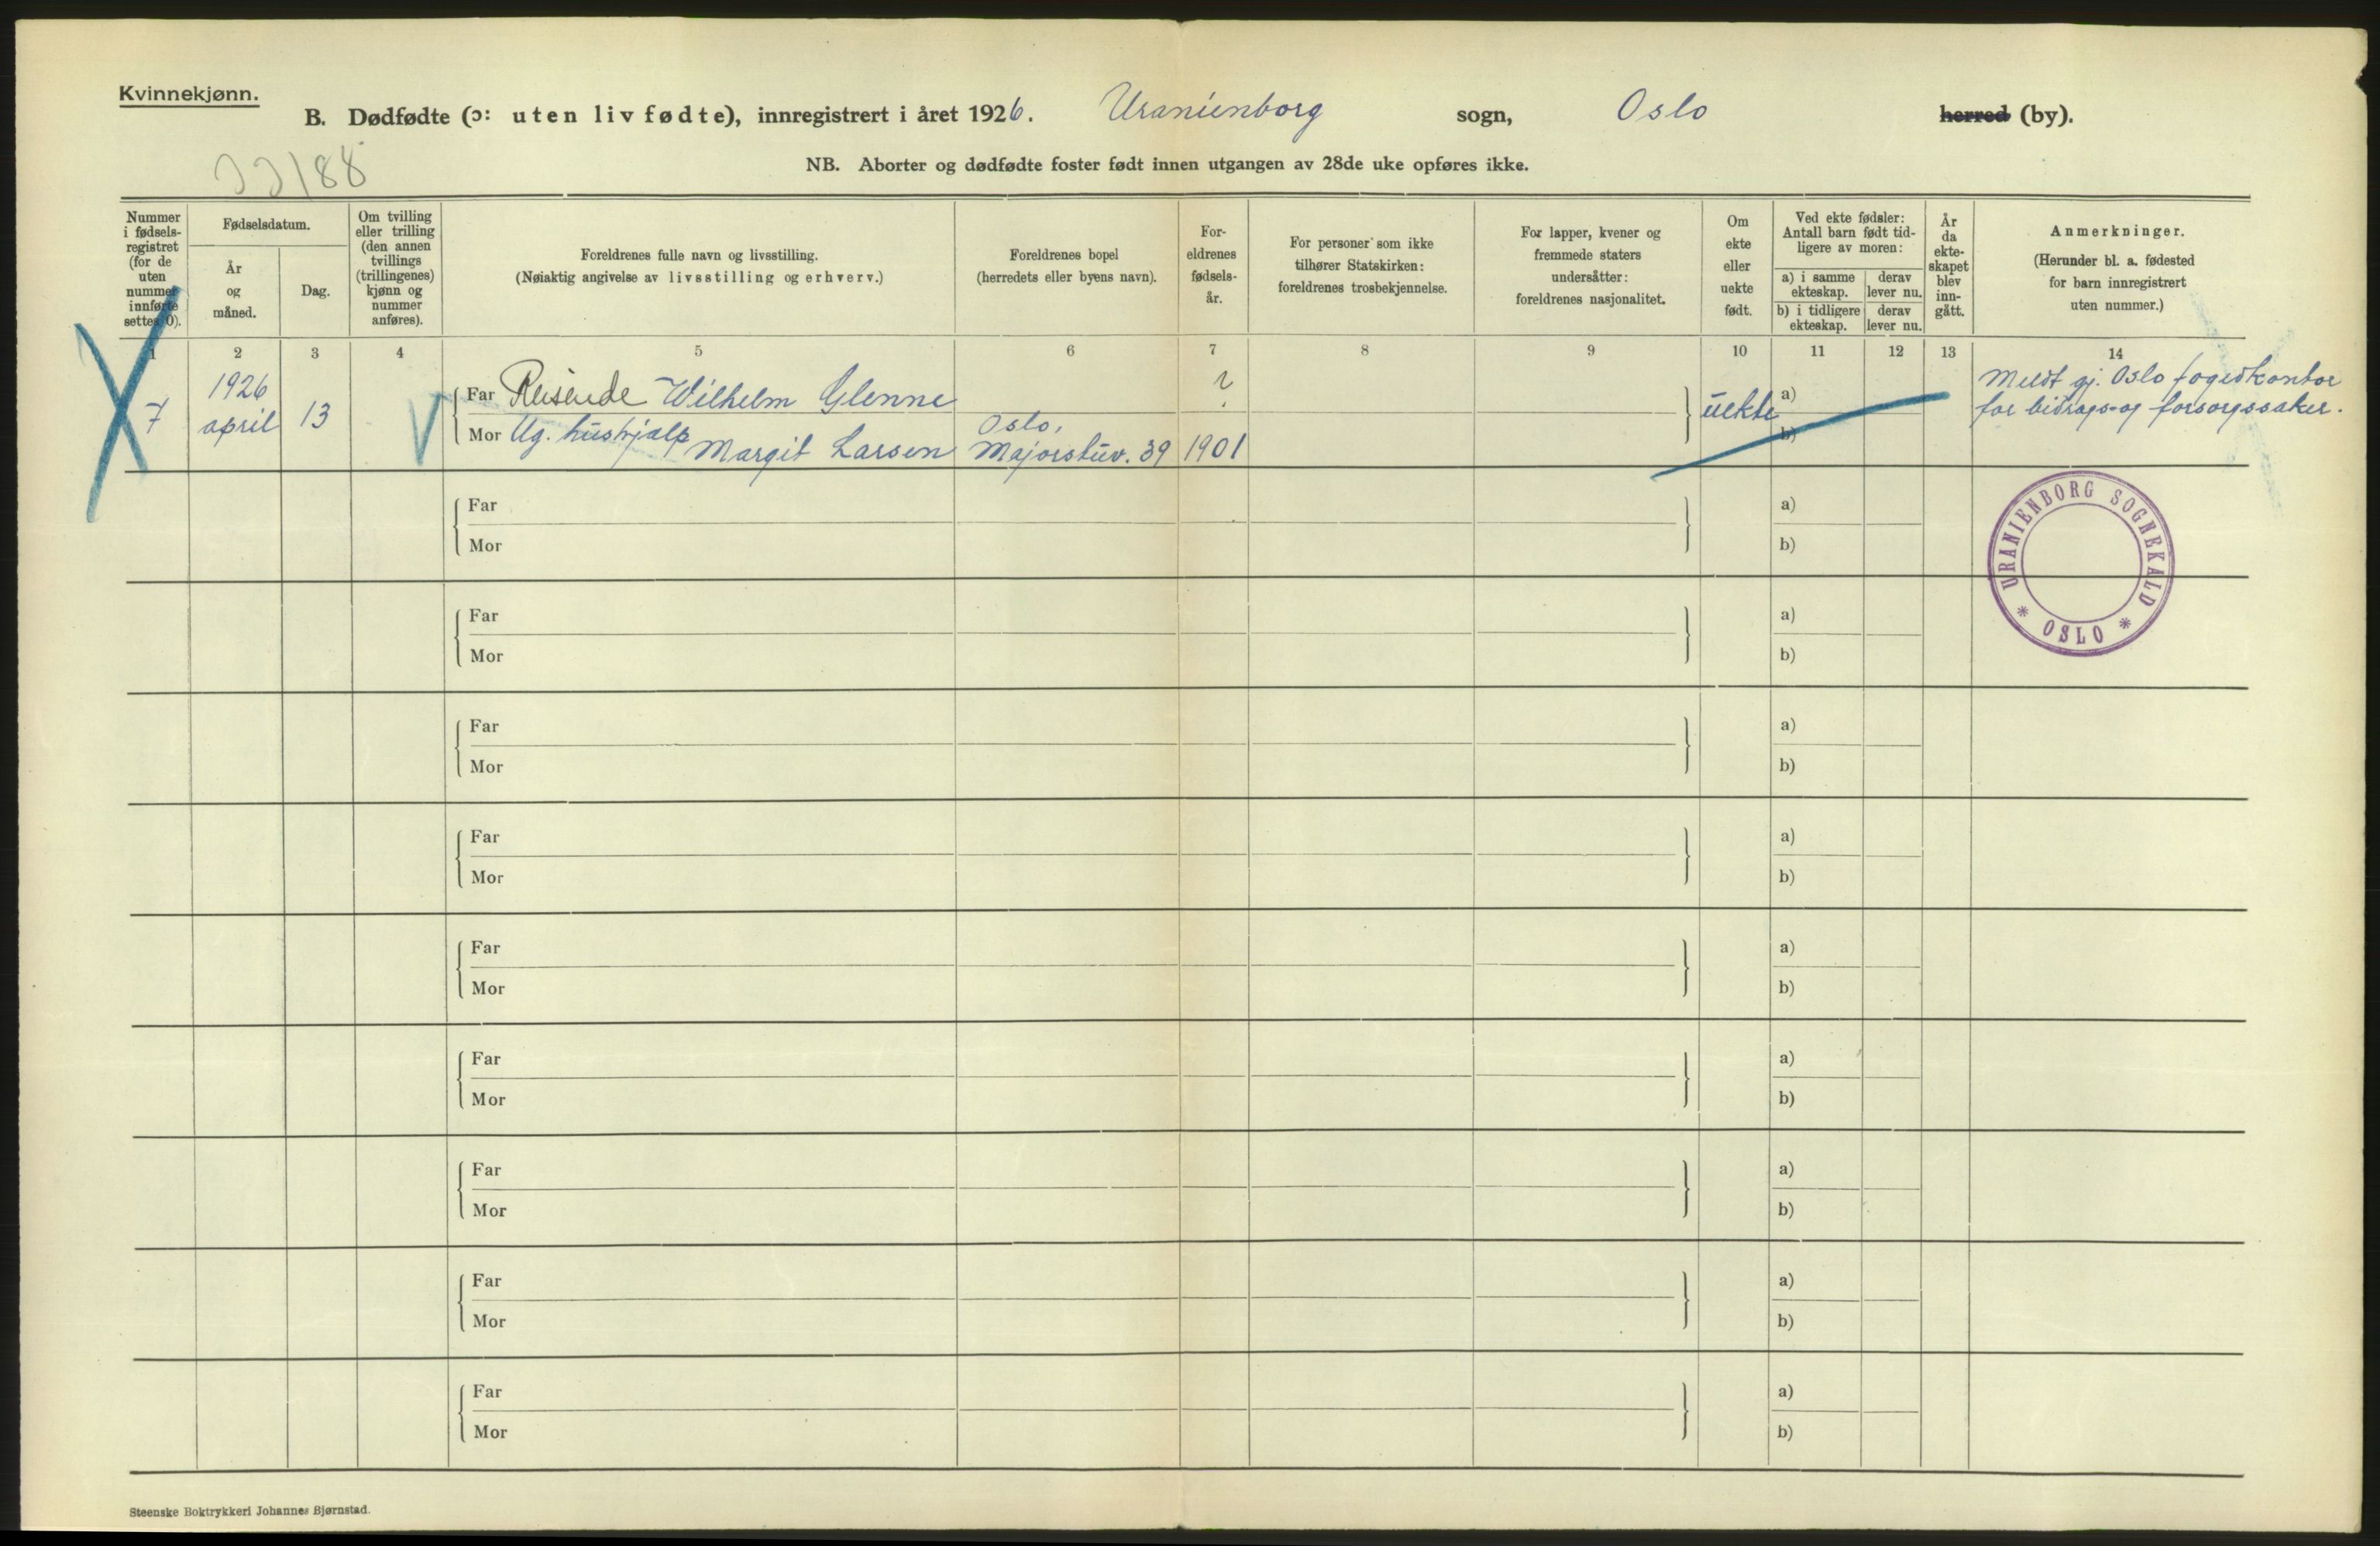 Kvinnekjønn.
B. Dødfødte (ɔ: uten liv fødte), innregistrert i året 1926. Uranienborg sogn, Oslo herred (by).
NB. Aborter og dødfødte foster født innen utgangen av 28de uke opføres ikke.
Nummer i fødsels-registret (for de uten nummer innførte settes 0).
Fødselsdatum.
År og måned.
Dag.
Om tvilling eller trilling (den annen tvillings (trillingenes) kjønn og nummer anføres).
Foreldrenes fulle navn og livsstilling.
(Nøiaktig angivelse av livsstilling og erhverv.)
Foreldrenes bopel
(herredets eller byens navn).
For-eldrenes fødsels-år.
For personer som ikke
tilhører Statskirken:
foreldrenes trosbekjennelse.
For lapper, kvener og
fremmede staters
undersåtter:
foreldrenes nasjonalitet.
Om ekte eller uekte født.
Ved ekte fødsler:
Antall barn født tid-
ligere av moren:
a) i samme ekteskap.
derav lever nu.
b) i tidligere ekteskap.
derav lever nu.
År da ekte-skapet blev inn-gått.
Anmerkninger.
(Herunder bl. a. fødested
for barn innregistrert
uten nummer.)
1 2 3 4 5 6 7 8 9 10 11 12 13 14
7 1926 april 13
Far Reisende Wilhelm Glenne ?
Mor Ug. hushjælp Margit Larsen Oslo, Majorstuv. 39 1901
uekte a)
b)
Meldt gj. Oslo fogedkontor
for bidrags- og forsorgssaker.
URANIENBORG SOGNEKALD * OSLO *
Far a)
Mor b)
Far a)
Mor b)
Far a)
Mor b)
Far a)
Mor b)
Far a)
Mor b)
Far a)
Mor b)
Far a)
Mor b)
Far a)
Mor b)
Far a)
Mor b)
Steenske Boktrykkeri Johannes Bjørnstad.